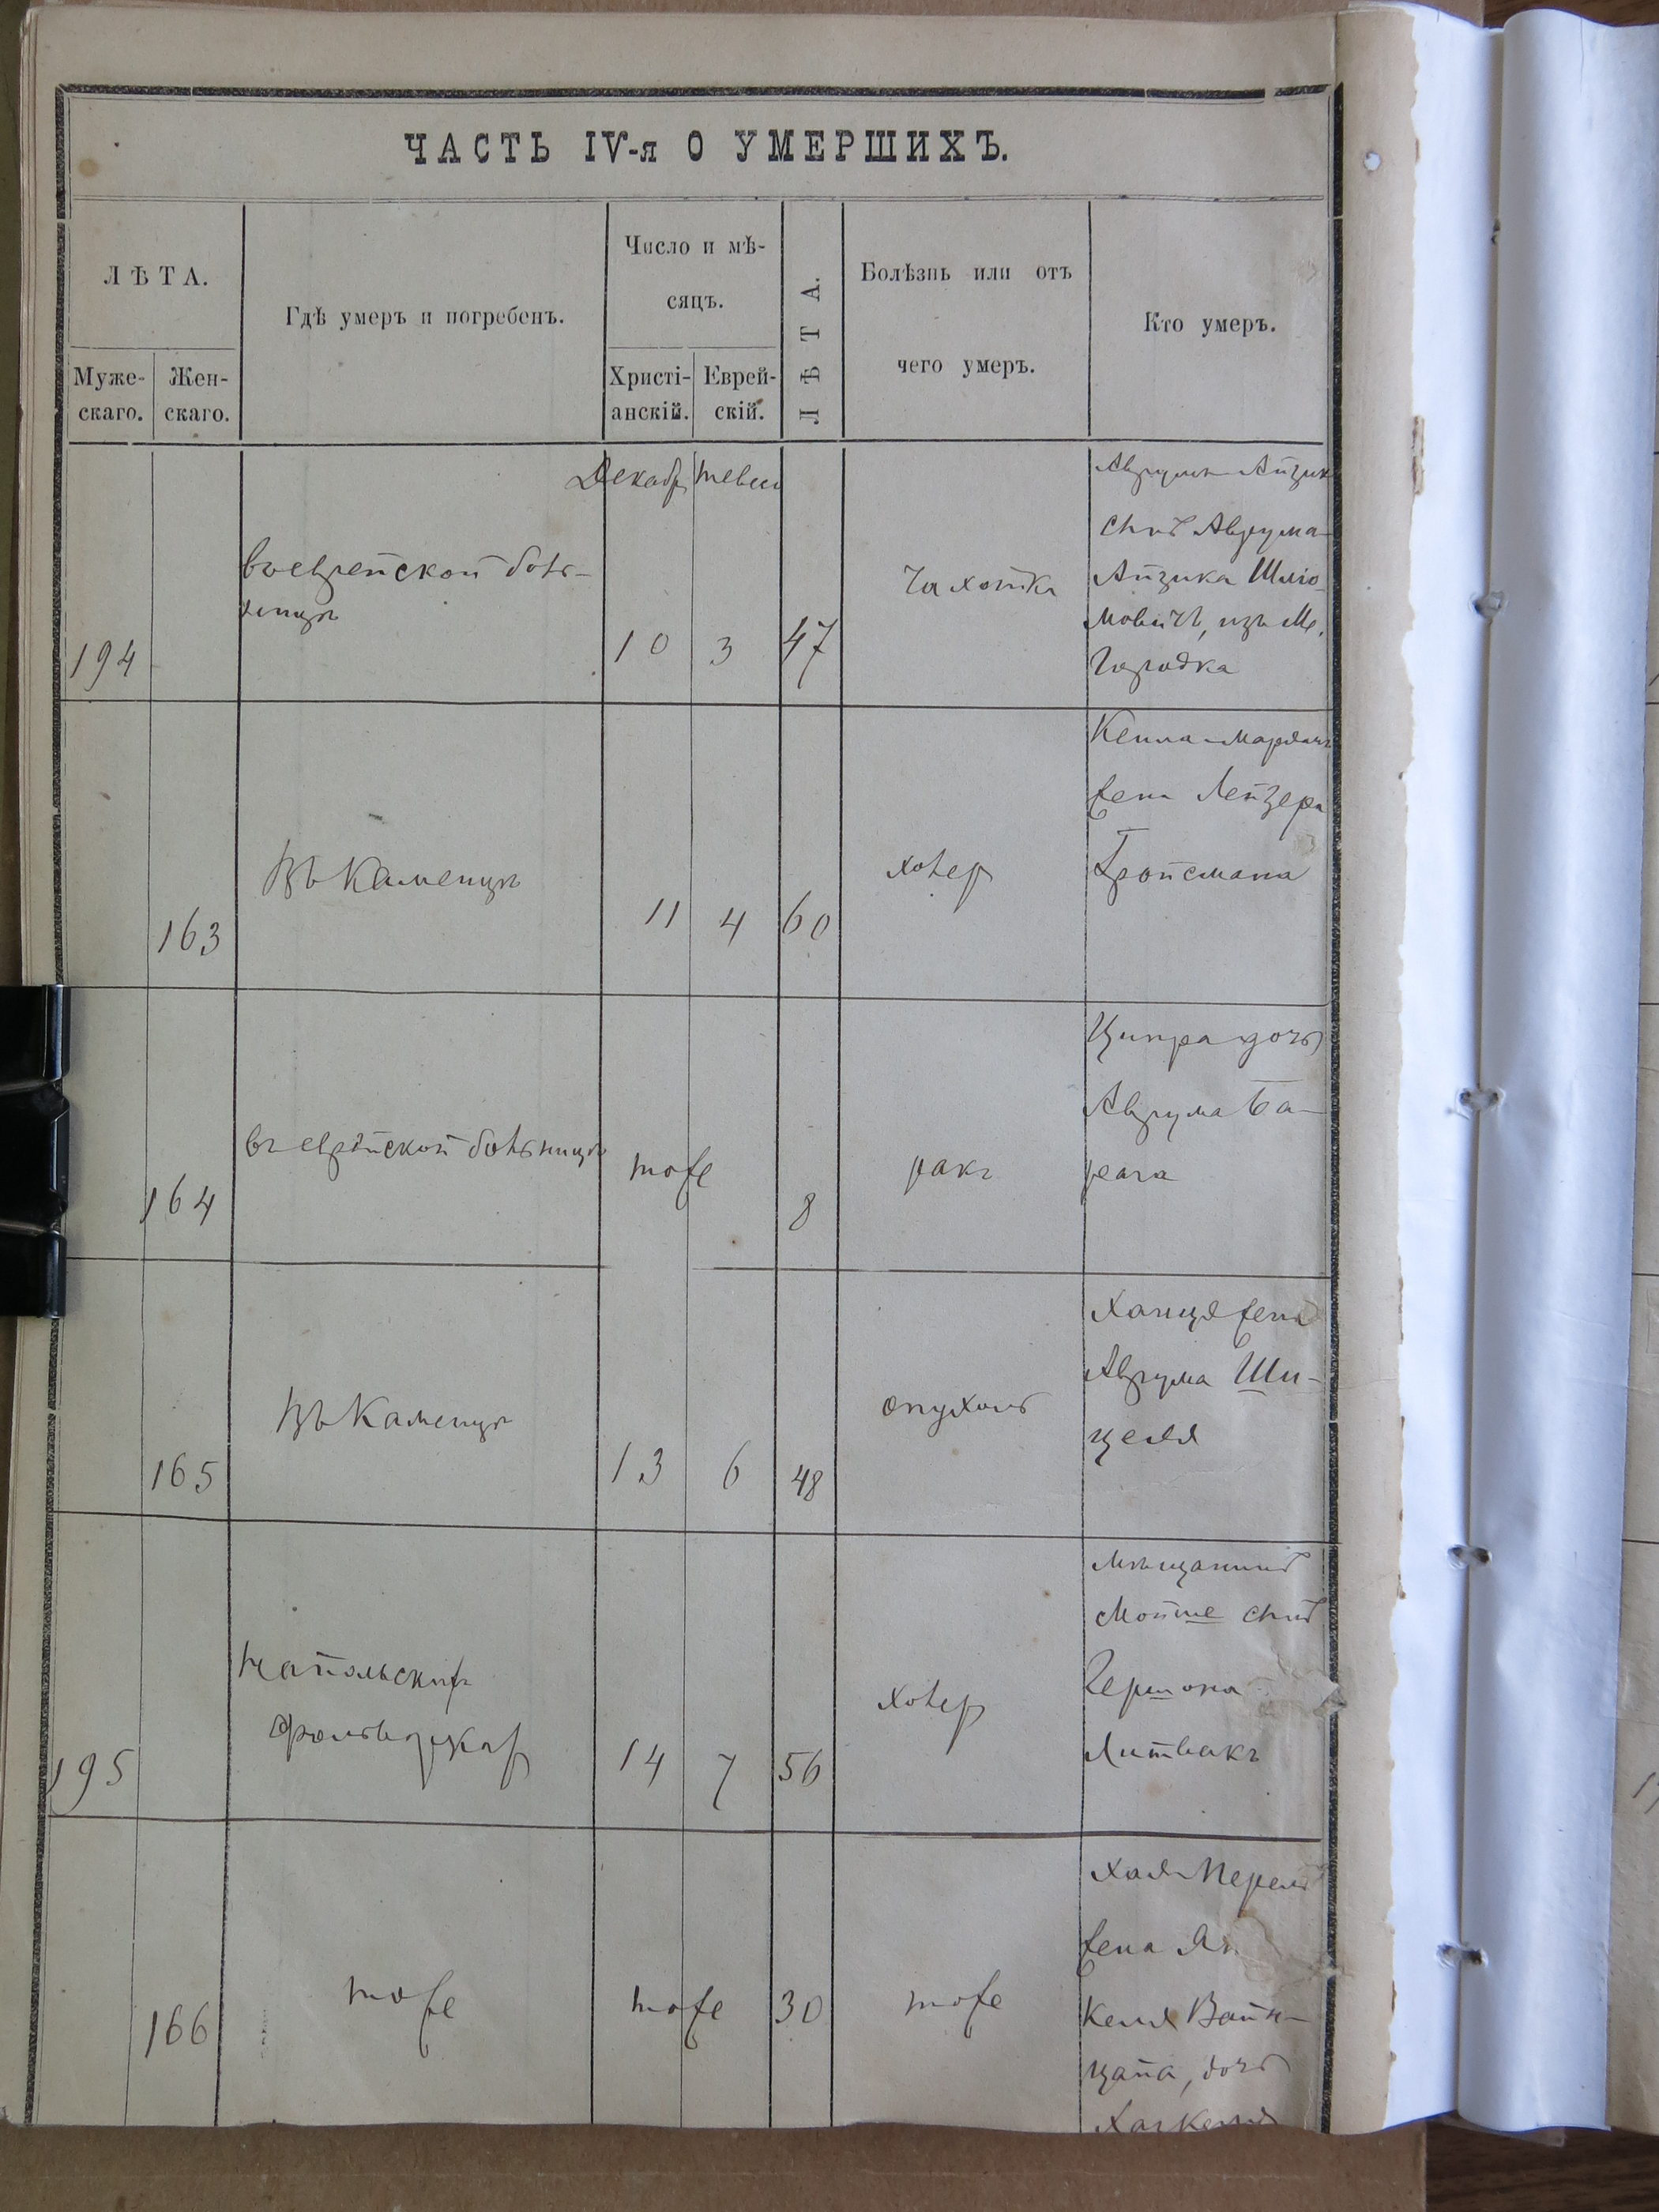 ЧАСТЬ IV-я О УМЕРШИХЪ.
ЛѢТА.
Муже-
скаго.
Жен-
скаго.
Гдѣ умеръ и погребенъ.
Число и мѣ-
сяцъ.
Христі-
анскій.
Еврей-
скій.
ЛѢТА.
Болѣзнь или отъ
чего умеръ.
Кто умеръ.
194
въ еврейской боль-
ницѣ
Декабр
10
3
47
Чахотка
Аврумъ-Айзик
сынъ Аврума-
Айзика Шліо-
мовичъ, изъ М.
Городка
163
въ Каменцѣ
11
4
60
холер
лейзера
Гройсмана
164
въ еврейской больницѣ
тоже
8
ракъ
Ципра дочь
Аврума Ба-
165
въ Каменцѣ
13
6
48
опухоль
Ханця жена
Аврума Ши-
целя
195
польских
фольварках
14
7
56
холер
мѣщанинъ
Мойше сынъ
Гершона
Литвакъ
166
тоже
тоже
30
тоже
Хая Перель
жена
келя Вайн-
цапа, дочь